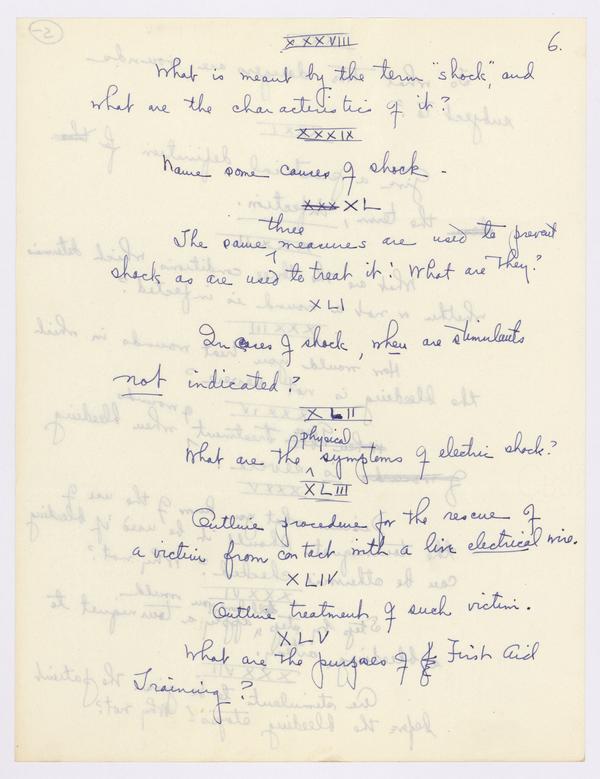 -5-
XXXVIII
6.
What is meant by the term "shock", and
what are the characteristics of it?
XXXIX
Name some causes of shock.
XXX XL
three
The same measures are used to prevent
shock as are used to treat it! What are they?
XLI
In cases of shock, when are stimulants
not indicated?
XLII
physical
What are the symptoms of electric shock?
XLIII
Outline procedure for the rescue of
a victim from contact with a live electrical wire.
XLIV
Outline treatment of such victim.
XLV
What are the purposes of First Aid
Training?